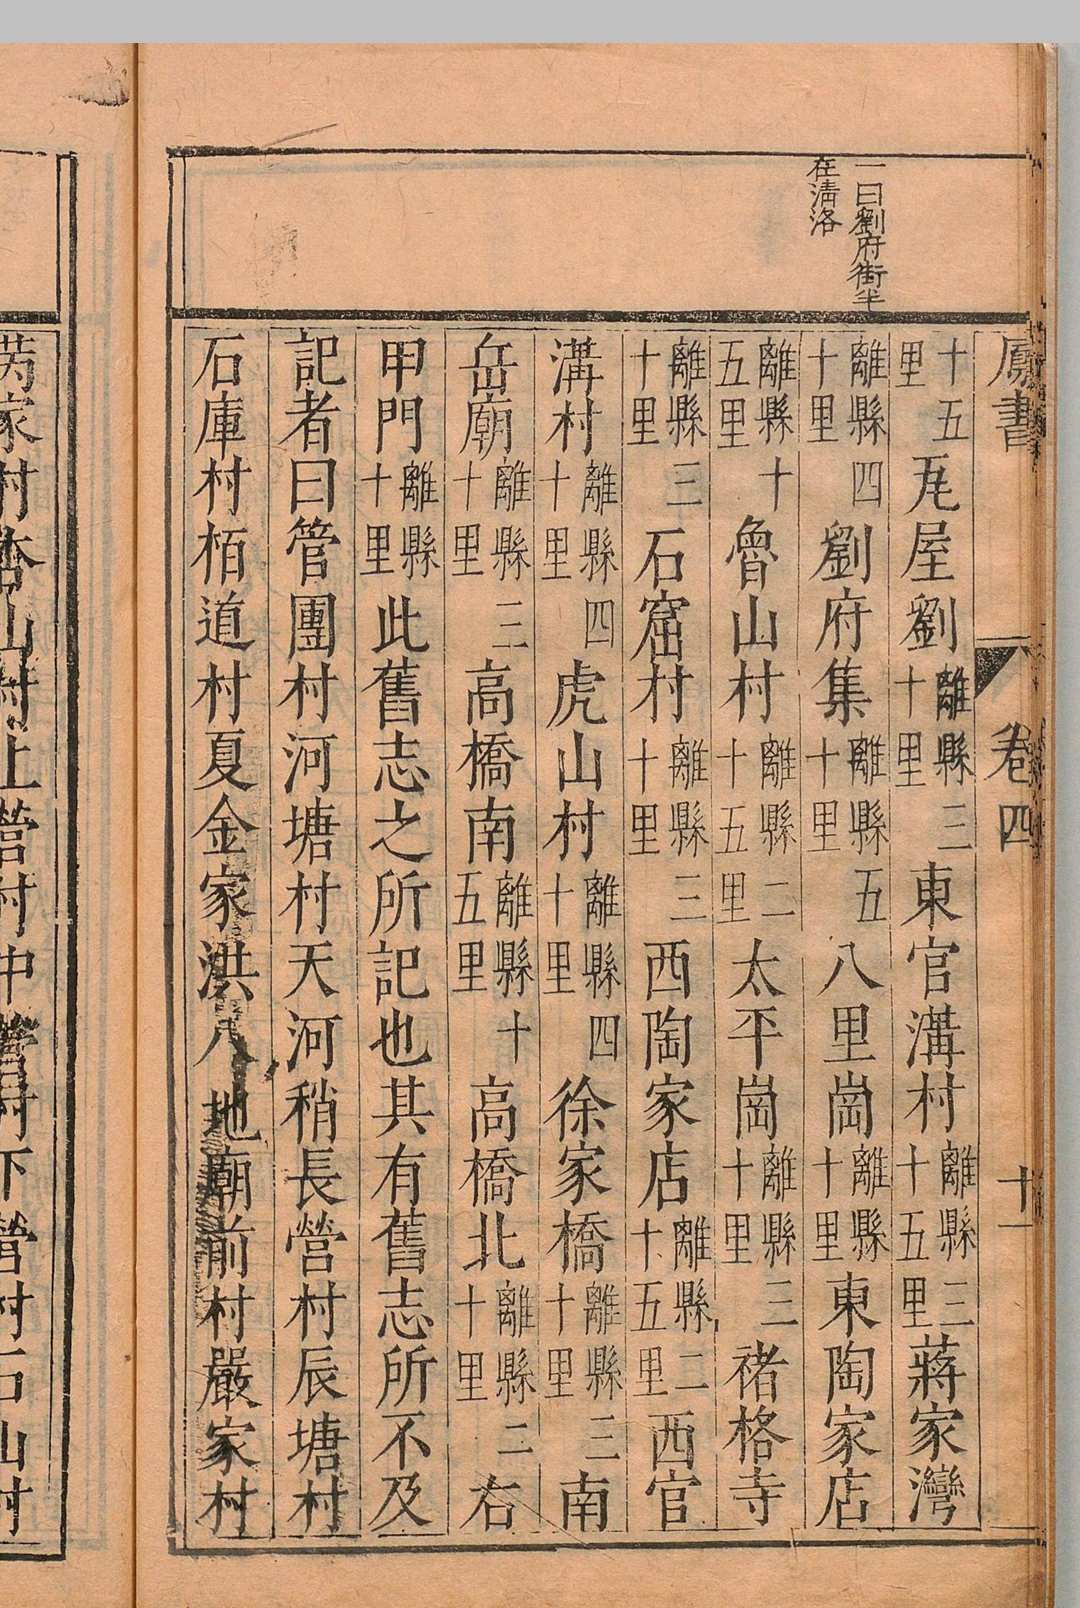 鳳書 卷四 十一
一曰劉府街半
在清洛
十五里瓦屋劉離縣三十里東官溝村離縣三十五里蔣家灣
離縣四十里劉府集離縣五十里八里崗離縣十里東陶家店
離縣十五里魯山村離縣二十五里太平崗離縣三十里褚格寺
離縣三十里石窟村離縣三十里西陶家店離縣二十五里西官
溝村離縣四十里虎山村離縣四十里徐家橋離縣三十里南
岳廟離縣三十里高橋南離縣十五里高橋北離縣二十里右
甲門離縣十里此舊志之所記也其有舊志所不及
記者曰管團村河塘村天河稍長營村辰塘村
石庫村栢道村夏金家洪八地廟前村嚴家村
家村杏山村上營村中營村下營村石山村